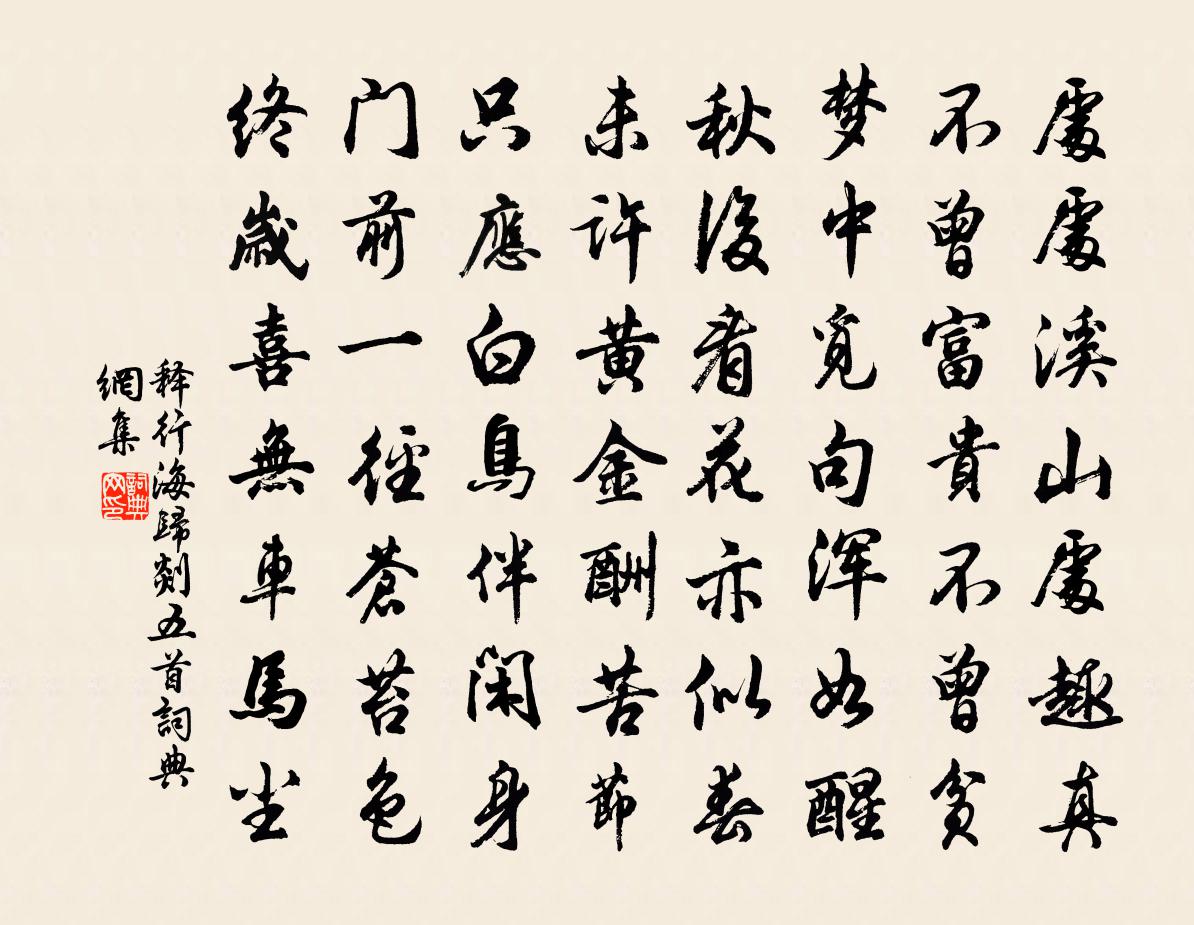 處處溪山處趣真
不曾富貴不曾貧
梦中覓句浑如醒
秋後看花亦似春
未許黄金酬苦節
只應白鳥伴閑身
门前一徑蒼苔色
终歲喜無車馬尘
释行海歸剡五首詞典
網集
詞典网印